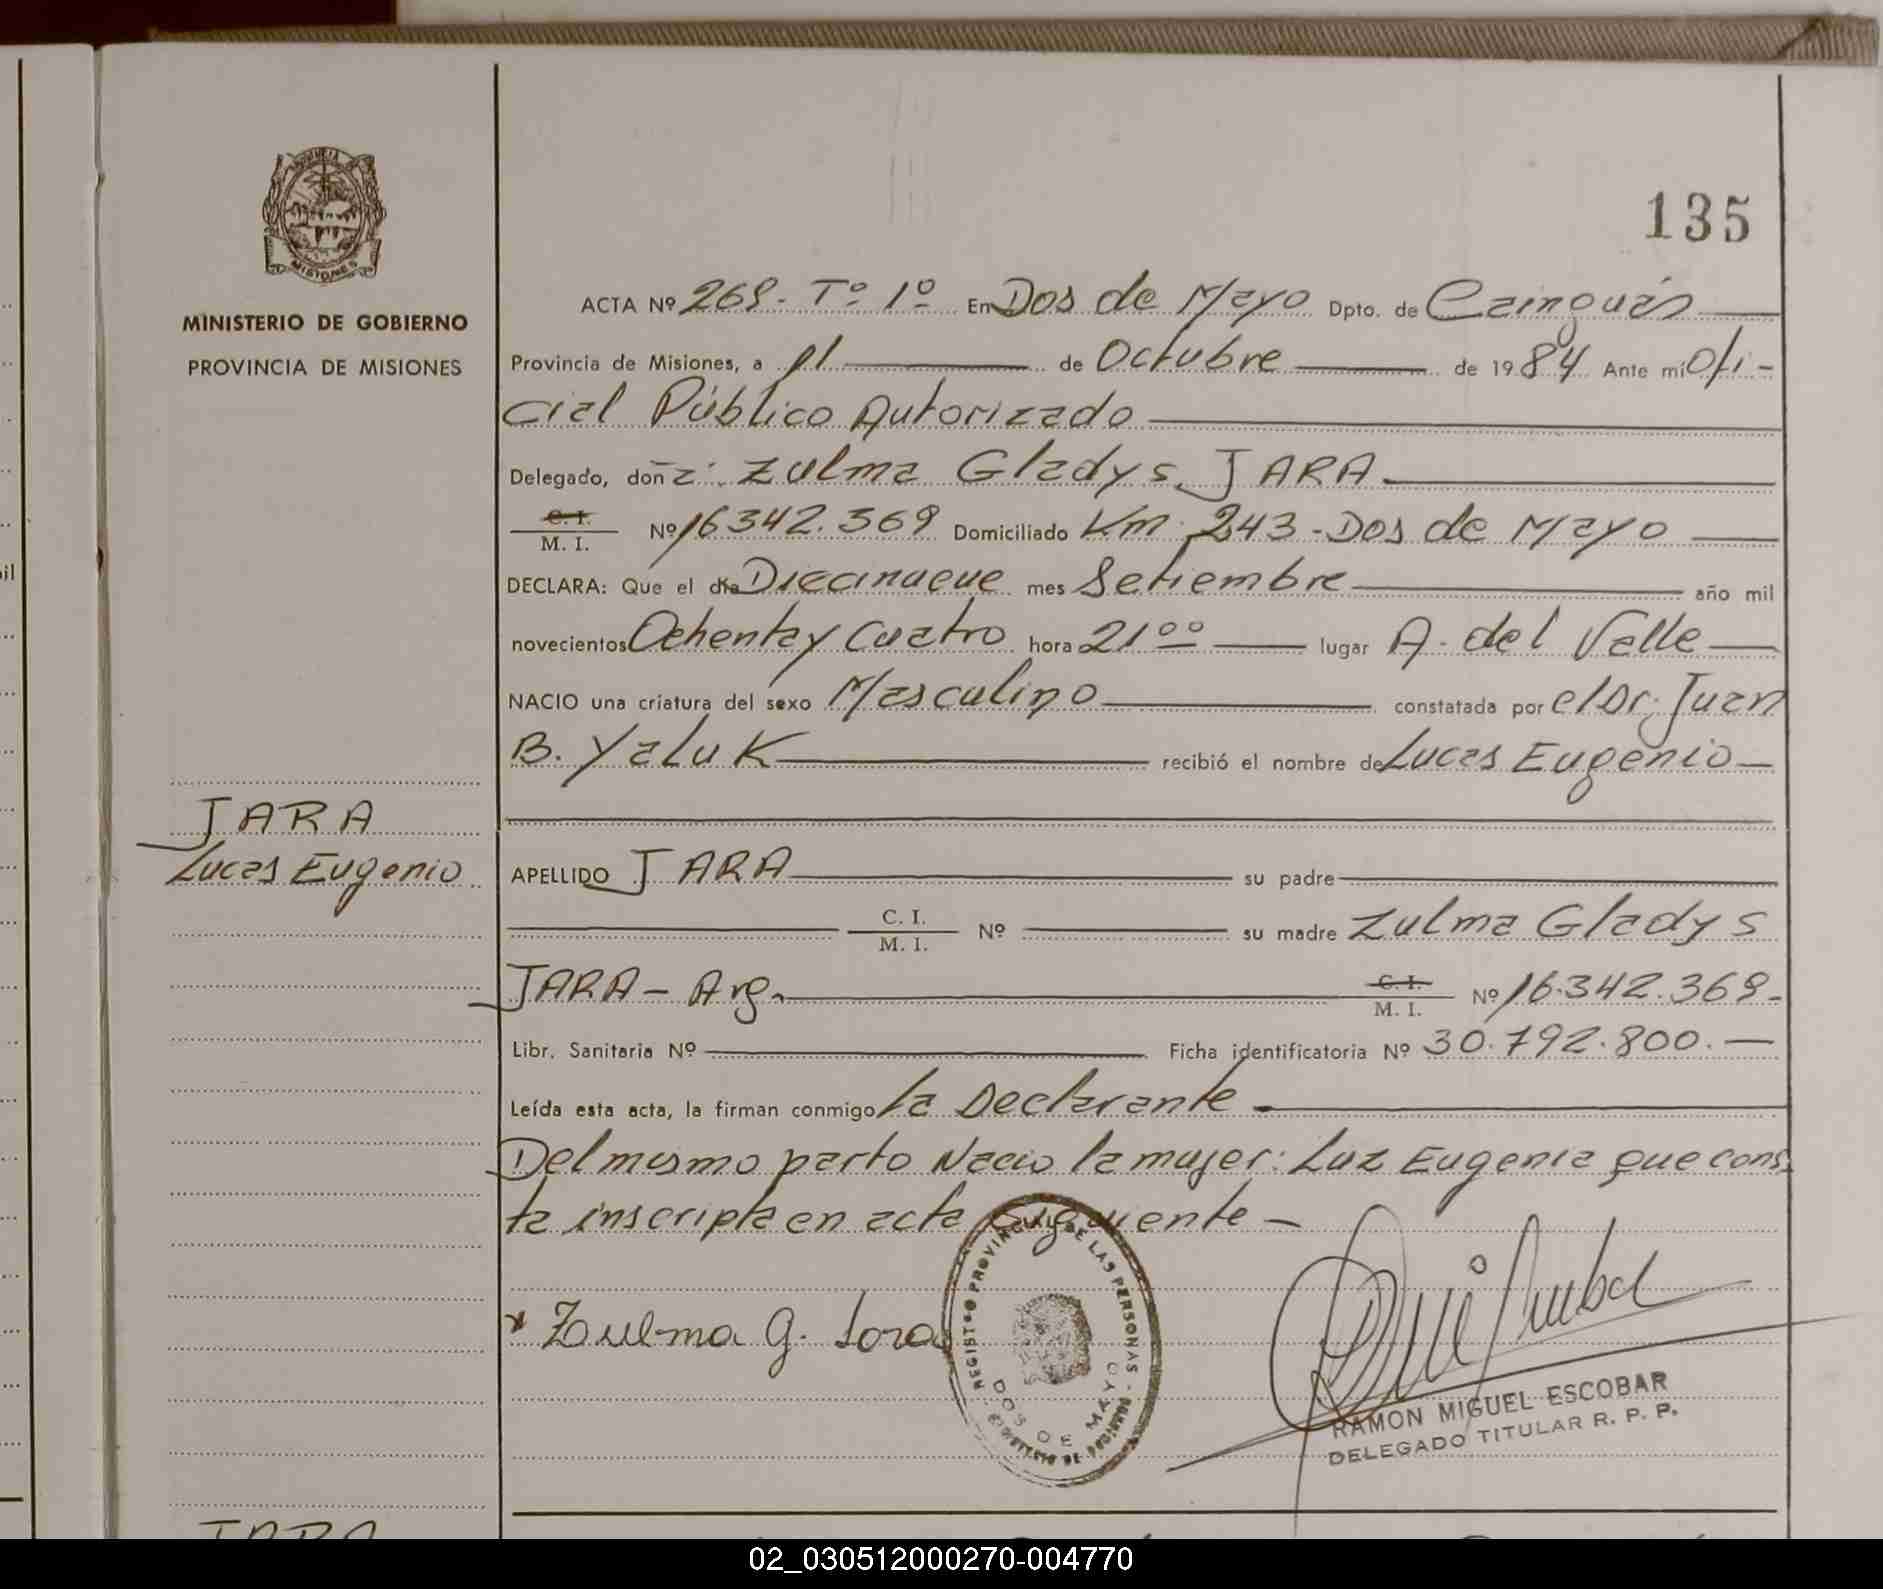 135
MINISTERIO DE GOBIERNO
PROVINCIA DE MISIONES
MISIONES
ACTA Nº 269. Tº 1º En Dos de Mayo Dpto. de Cainguás
Provincia de Misiones, a 01 de Octubre de 1984 Ante mi Ofi-
cial Público Autorizado
Delegado, doña: Zulma Gladys JARA
C. I. / M. I. Nº 16342.369 Domiciliado Km. 243 - Dos de Mayo
DECLARA: Que el día Diecinueve mes Setiembre año mil
novecientos Ochenta y Cuatro hora 21ºº lugar A. del Valle
NACIO una criatura del sexo Masculino constatada por el Dr. Juan
B. Yaluk recibió el nombre de Lucas Eugenio
JARA
Lucas Eugenio
APELLIDO JARA su padre
C. I. / M. I. Nº su madre Zulma Gladys
JARA - Arg. C. I. / M. I. Nº 16.342.369-
Libr. Sanitaria Nº Ficha identificatoria Nº 30.792.800.-
Leída esta acta, la firman conmigo la Declarante-
Del mismo parto Nacio la mujer: Luz Eugenia que cons
ta inscripta en acta siguiente-
Zulma G. Jara
REGISTRO PROVINCIAL DE LAS PERSONAS
DOS DE MAYO
RAMON MIGUEL ESCOBAR
DELEGADO TITULAR R. P. P.
JARA
02_030512000270-004770